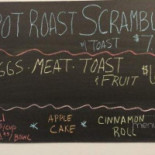 POT ROAST SCRAMB
W/ TOAST $7
GGS-MEAT-TOAST
& FRUIT $
APPLE CAKE
CINNAMON ROLL